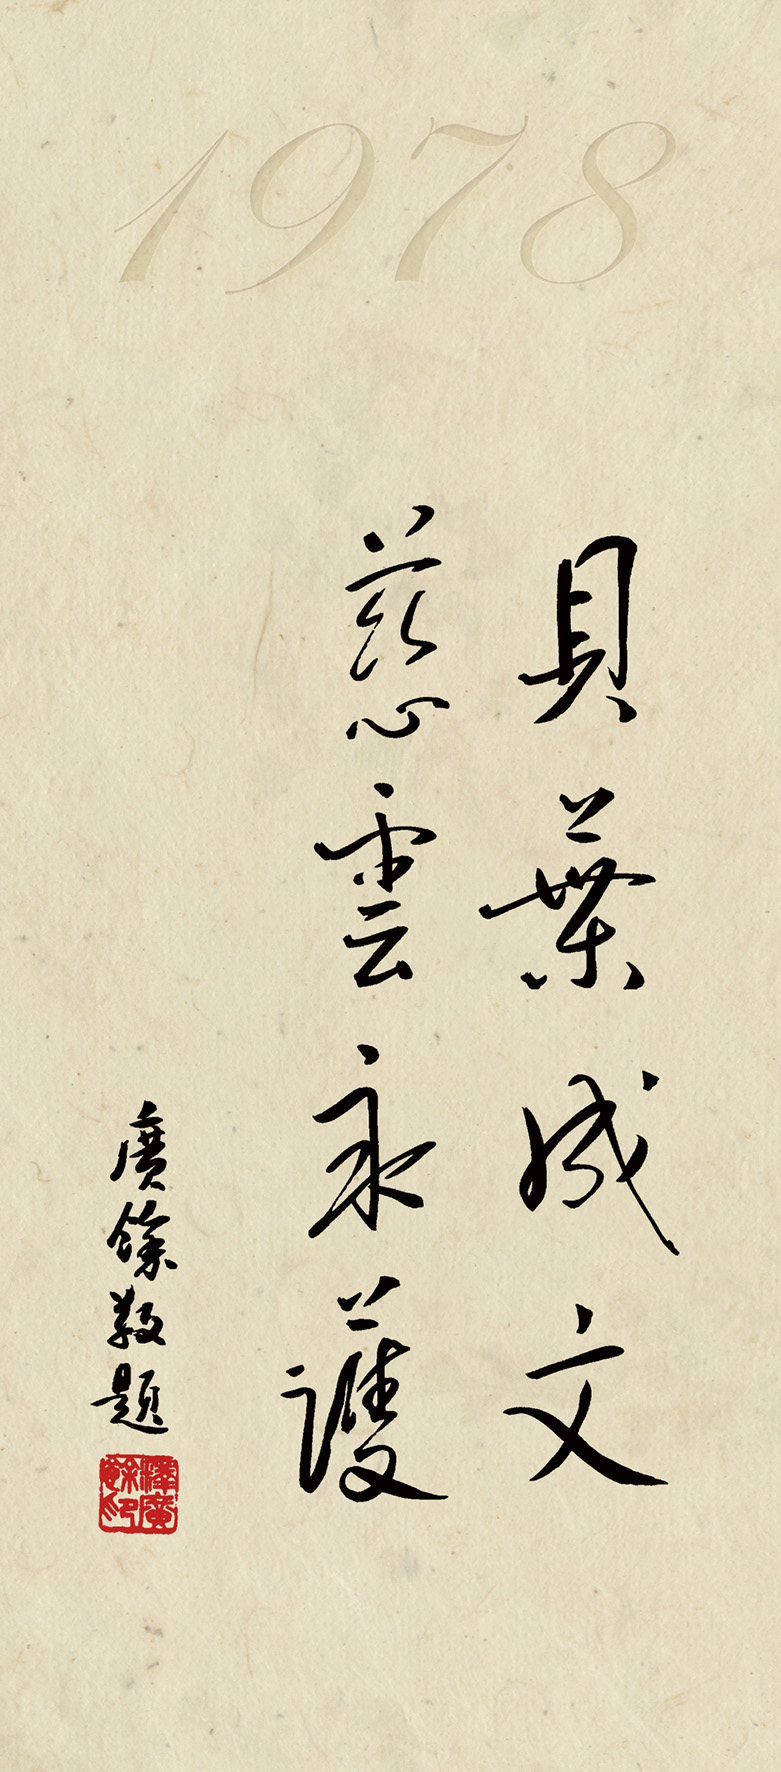 1978
貝葉成文
慈雲永護
廣餘敬題
釋廣餘印